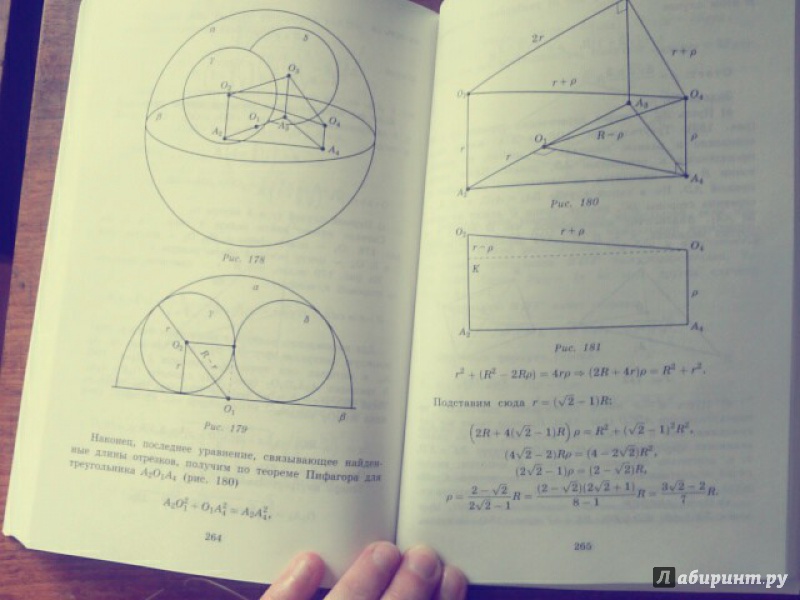 α
δ
γ
O₃
O₂
β
O₁
A₃
O₄
A₂
A₄
Рис. 178
α
γ
δ
r
O₂
R−r
r
O₁
β
Рис. 179
Наконец, последнее уравнение, связывающее найден-
ные длины отрезков, получим по теореме Пифагора для
треугольника A₂O₁A₄ (рис. 180)
A₂O₁² + O₁A₄² = A₂A₄²,
264
2r
r+ρ
r+ρ
O₂
A₃
O₄
O₁
R−ρ
ρ
r
r
A₂
A₄
Рис. 180
O₂
r+ρ
O₄
r−ρ
K
ρ
A₂
A₄
Рис. 181
r² + (R² − 2Rρ) = 4rρ ⇒ (2R + 4r)ρ = R² + r².
Подставим сюда r = (√2 − 1)R:
(2R + 4(√2 − 1)R) ρ = R² + (√2 − 1)²R²,
(4√2 − 2)Rρ = (4 − 2√2)R²,
(2√2 − 1)ρ = (2 − √2)R,
ρ = (2 − √2)/(2√2 − 1) R = (2 − √2)(2√2 + 1)/(8 − 1) R = (3√2 − 2)/7 R.
265
Лабиринт.ру